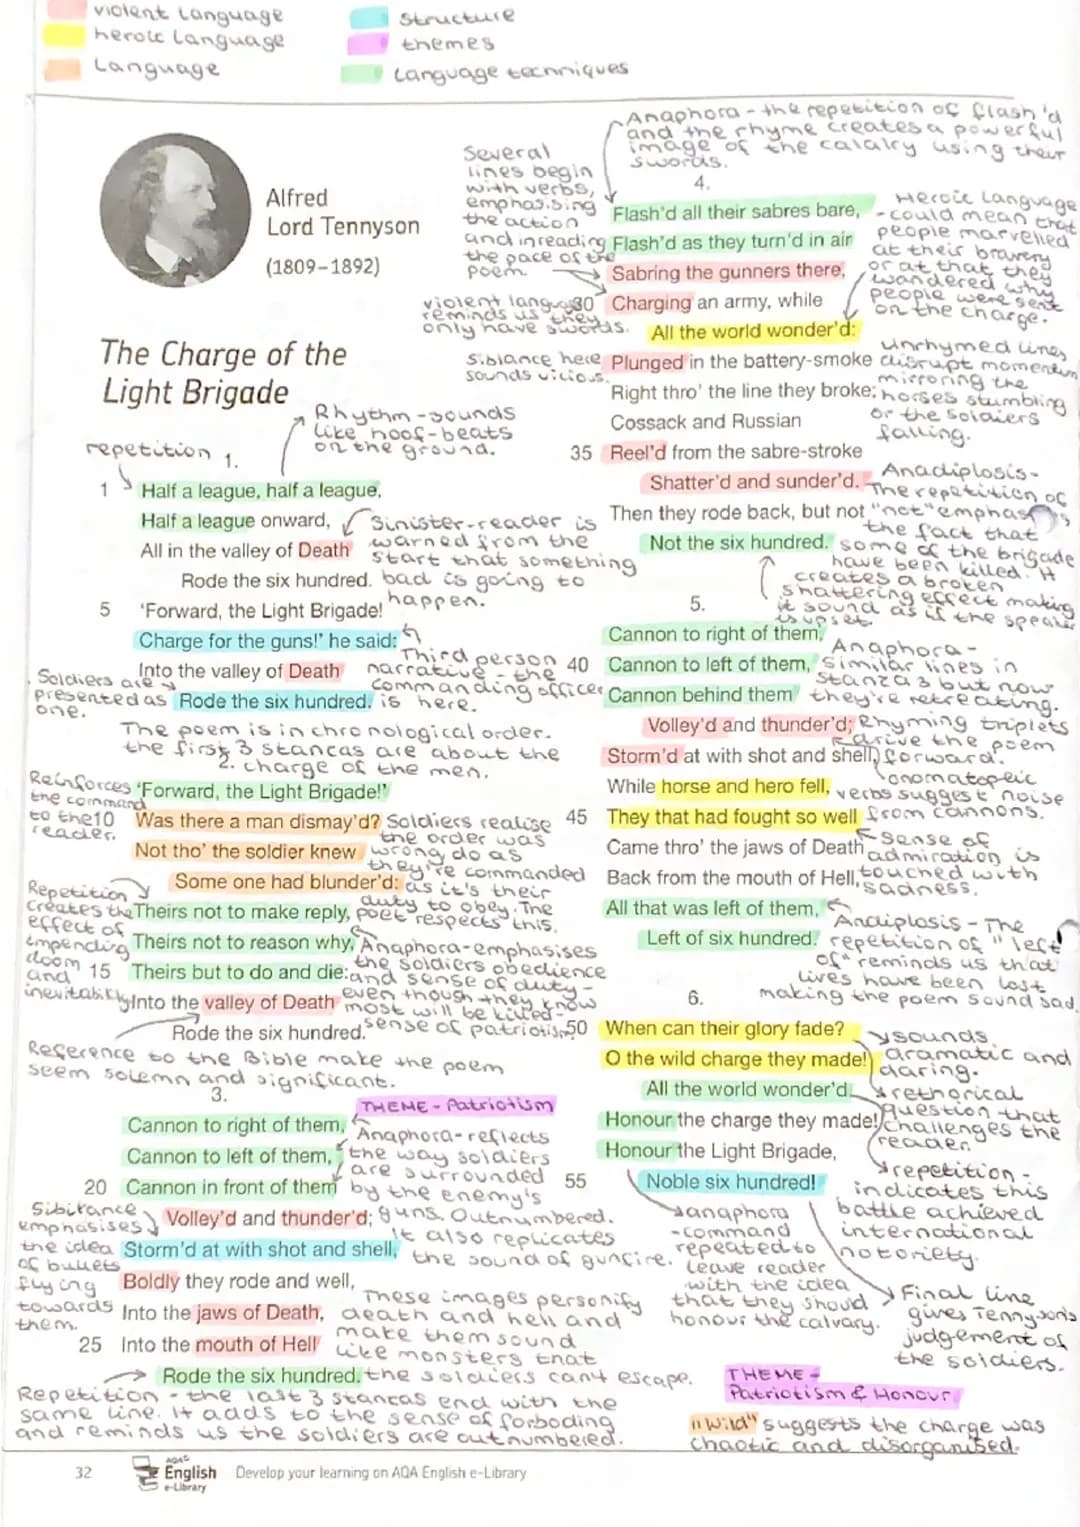 violent Language
heroic Language
Language
structure
themes
Language techniques
Alfred
Lord Tennyson
(1809–1892)
The Charge of the
Light Brigade
Rhythm - sounds
like hoof-beats
on the ground.
repetition
1.
1 Half a league, half a league,
Half a league onward,
All in the valley of Death
Rode the six hundred.
Sinister - reader is
warned from the
start that something
bad is going to
happen.
5 'Forward, the Light Brigade!
Charge for the guns!' he said:
Into the valley of Death
Rode the six hundred.
Third person
narrative - the
commanding officer
is here.
Soldiers are
presented as
one.
The poem is in chronological order.
the first 3 stancas are about the
charge of the men.
2.
'Forward, the Light Brigade!'
10 Was there a man dismay'd?
Not tho' the soldier knew
Some one had blunder'd:
Theirs not to make reply,
Theirs not to reason why,
15 Theirs but to do and die:
Into the valley of Death
Rode the six hundred.
Reinforces
the command
to the
reader.
Soldiers realise
the order was
wrong do as
they're commanded
as it's their
duty to obey. The
poet respects this.
Repetition
creates the
effect of
impending
doom
and
inevitability
Anaphora - emphasises
the soldiers obedience
and sense of duty -
even though they know
most will be killed -
sense of patriotism
Reference to the Bible make the poem
seem solemn and significant.
3.
THEME - Patriotism
Cannon to right of them,
Cannon to left of them,
20 Cannon in front of them
Volley'd and thunder'd;
Storm'd at with shot and shell,
Boldly they rode and well,
Into the jaws of Death,
25 Into the mouth of Hell
Rode the six hundred.
Anaphora - reflects
the way soldiers
are surrounded
by the enemy's
guns. Outnumbered.
It also replicates
the sound of gunfire.
Sibilance
emphasises
the idea
of bullets
flying
towards
them.
These images personify
death and hell and
make them sound
like monsters that
the soldiers cant escape.
Repetition - the last 3 stancas end with the
same line. It adds to the sense of forboding
and reminds us the soldiers are outnumbered.
Anaphora - the repetition of flash'd
and the rhyme creates a powerful
image of the calalry using their
swords.
Several
lines begin
with verbs,
emphasising
the action
and inreading
the pace of the
poem.
4.
Flash'd all their sabres bare,
Flash'd as they turn'd in air
Sabring the gunners there,
30 Charging an army, while
All the world wonder'd:
Plunged in the battery-smoke
Right thro' the line they broke;
Cossack and Russian
35 Reel'd from the sabre-stroke
Shatter'd and sunder'd.
Then they rode back, but not
Not the six hundred.
Heroic Language
- could mean that
people marvelled
at their bravery
or at that they
wandered why
people were sent
on the charge.
violent language
reminds us they
only have swords.
Siblance here
sounds vicious.
Unrhymed lines
disrupt momentum
mirroring the
horses stumbling
or the soldiers
falling.
Anadiplosis -
The repetition of
"not" emphasises
the fact that
some of the brigade
have been killed. It
creates a broken
shattering effect making
it sound as if the speaker
is upset.
5.
Cannon to right of them,
40 Cannon to left of them,
Cannon behind them
Volley'd and thunder'd;
Storm'd at with shot and shell,
While horse and hero fell,
45 They that had fought so well
Came thro' the jaws of Death
Back from the mouth of Hell,
All that was left of them,
Left of six hundred.
Anaphora -
similar lines in
stanza 3 but now
they're retreating.
Rhyming triplets
drive the poem
forward.
onomatopeic
verbs suggest noise
from cannons.
sense of
admiration is
touched with
sadness.
Andiplosis - The
repetition of "left
of" reminds us that
lives have been lost
making the poem sound sad
6.
50 When can their glory fade?
O the wild charge they made!
All the world wonder'd.
Honour the charge they made!
Honour the Light Brigade,
55 Noble six hundred!
sounds
dramatic and
daring.
rethorical
question that
challenges the
reader.
repetition -
indicates this
battle achieved
international
notoriety.
anaphora
- command
repeated to
leave reader
with the idea
that they should
honour the calvary.
Final line
gives Tennysons
judgement of
the soldiers.
THEME -
Patriotism & Honour
"Wild" suggests the charge was
chaotic and disorganised.
32
AQA
English
e-Library
Develop your learning on AQA English e-Library